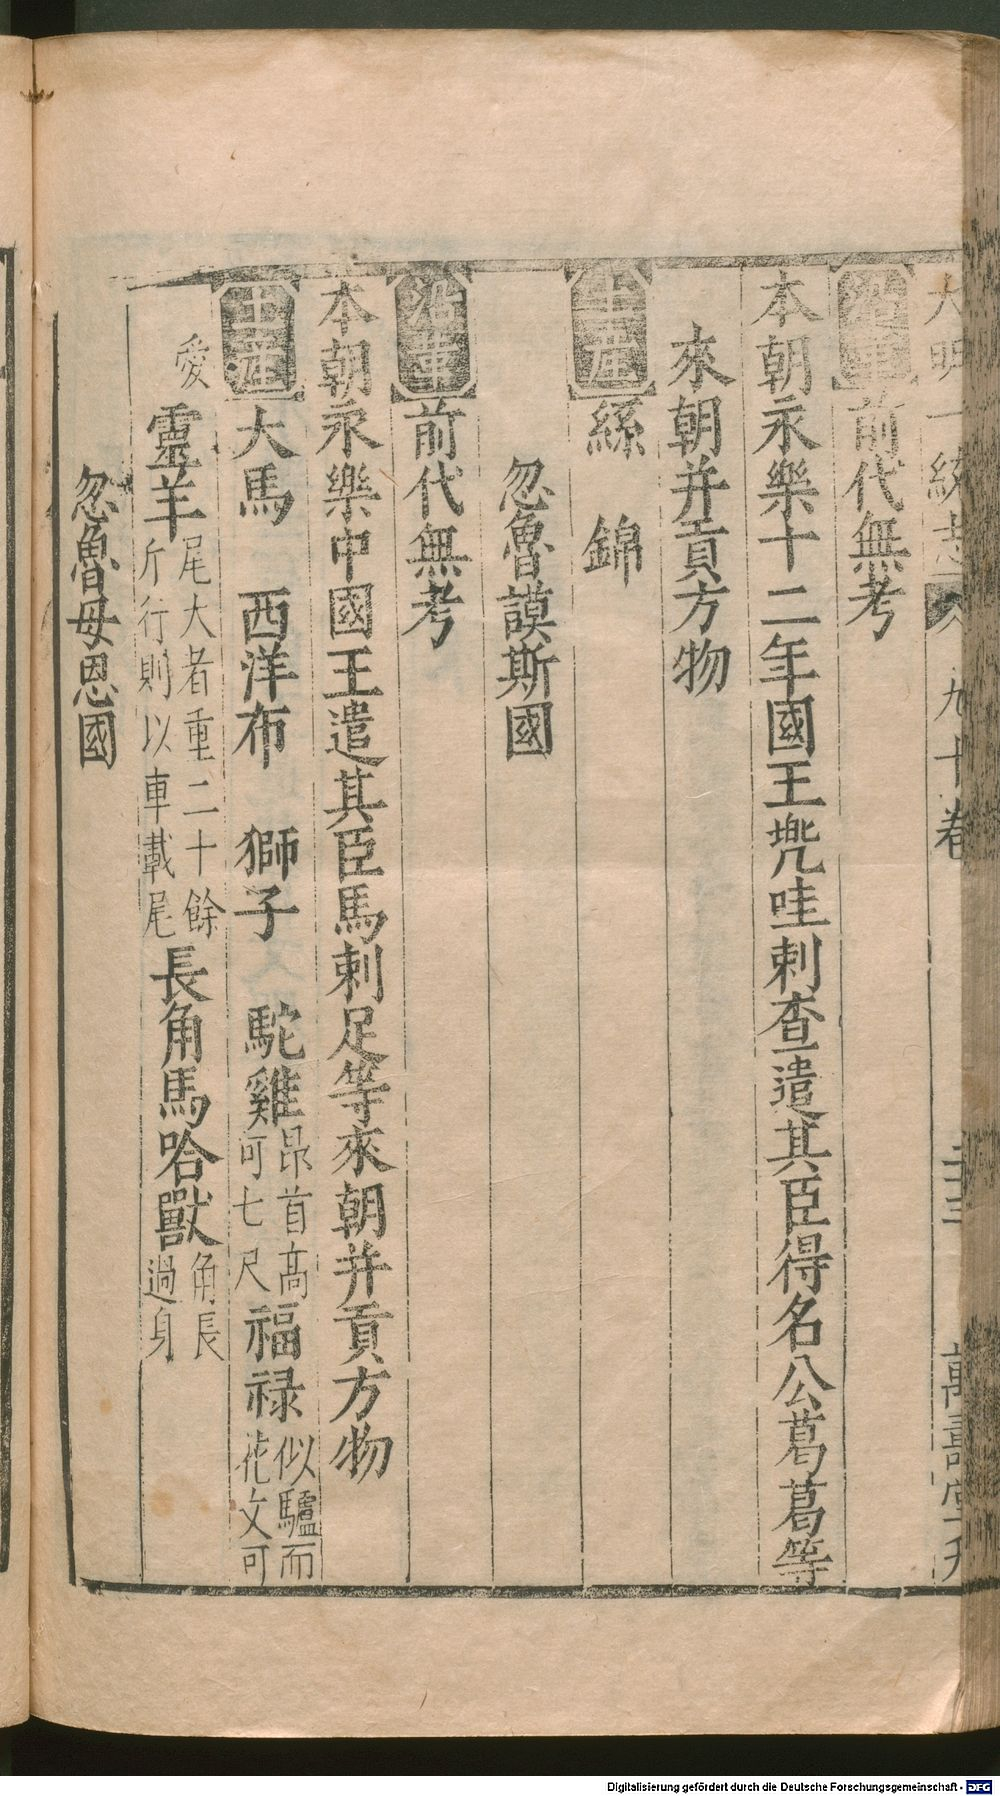 大明一統志 九十卷 三十三 萬壽堂刊
沿革 前代無考
本朝永樂十二年國王㘎哇剌查遣其臣得名公葛葛等
來朝并貢方物
土產 絲 錦
忽魯謨斯國
沿革 前代無考
本朝永樂中國王遣其臣馬剌足等來朝并貢方物
土產 大馬 西洋布 獅子 駝雞 昻首高可七尺 福禄 似驢而花文可
愛 靈羊 尾大者重二十餘斤行則以車載尾 長角馬哈獸 角長過身
忽魯母恩國
Digitalisierung gefördert durch die Deutsche Forschungsgemeinschaft - DFG